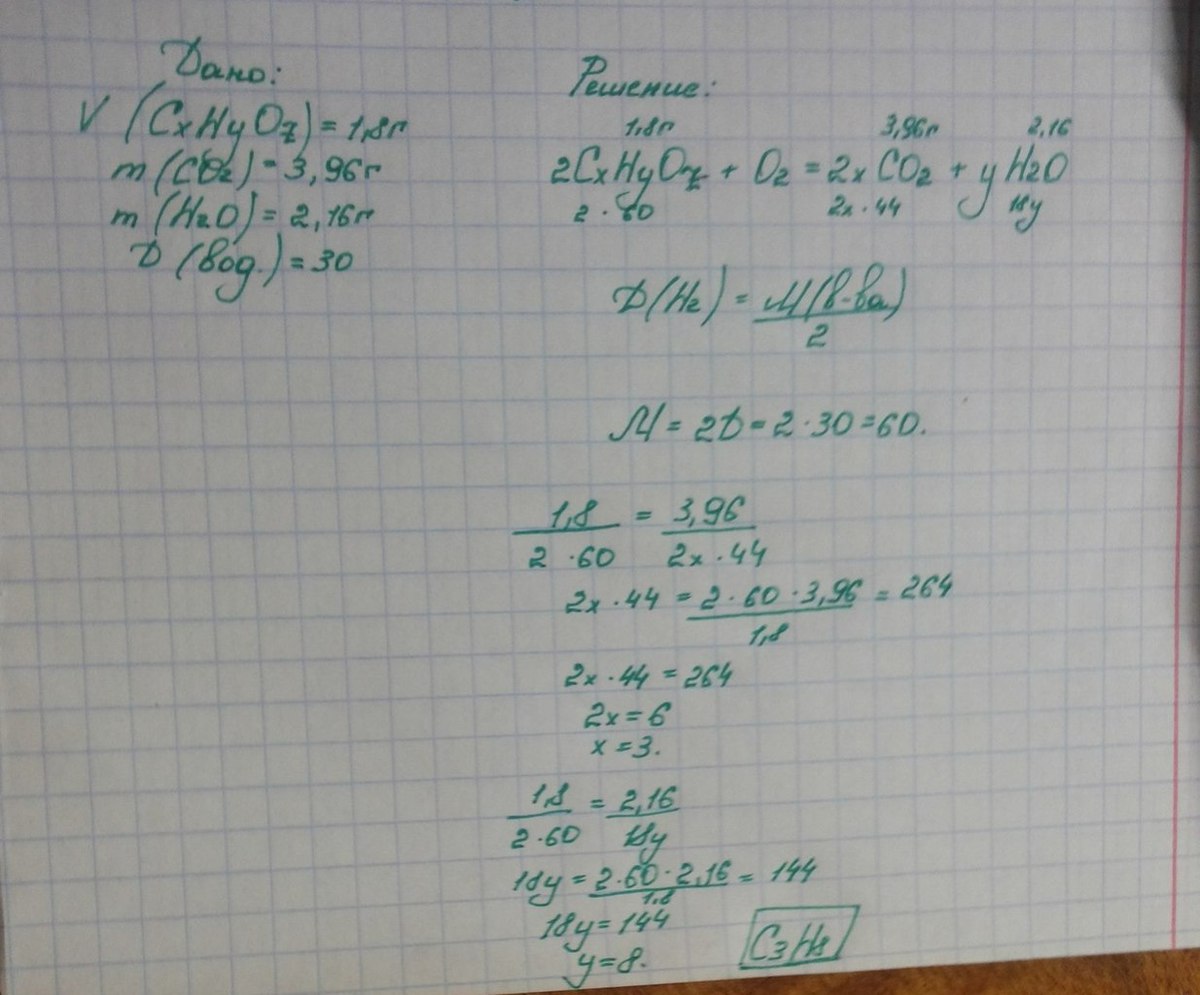 Дано:
V (CxHyOz) = 1,8г
m (CO2) = 3,96г
m (H2O) = 2,16г
D (вод.) = 30
Решение:
1,8г 3,96г 2,16
2CxHyOz + O2 = 2x CO2 + y H2O
2 · 60 2x · 44 18y
D(H2) = M(в-ва)
2
M = 2D = 2 · 30 = 60.
1,8 = 3,96
2 · 60 2x · 44
2x · 44 = 2 · 60 · 3,96 = 264
1,8
2x · 44 = 264
2x = 6
x = 3.
1,8 = 2,16
2 · 60 18y
18y = 2 · 60 · 2,16 = 144
1,8
18y = 144
y = 8.
C3H8